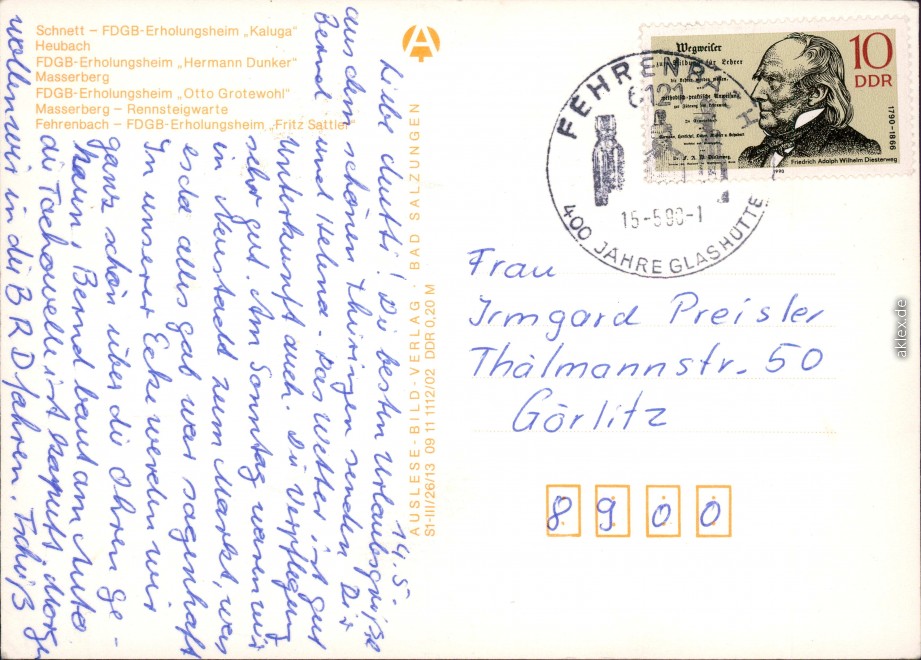 Schnett – FDGB-Erholungsheim „Kaluga"
Heubach
FDGB-Erholungsheim „Hermann Dunker"
Masserberg
FDGB-Erholungsheim „Otto Grotewohl"
Masserberg – Rennsteigwarte
Fehrenbach – FDGB-Erholungsheim „Fritz Sattler"
14.5.
Liebe Mutti! Die besten Urlaubsgrüße
aus dem schönen Thüringen senden Dir
Bernd und Helma. Das Wetter ist gut
Unterkunft auch. Die Verpflegung
sehr gut. Am Sonntag waren wir
in Neustadt zum Markt, was
es da alles gab war sagenhaft
In unserer Ecke werden wir
ganz schön über die Ohren ge-
hauin, Bernd baut am Auto
die Tachowelle ist kaputt. Morgen
wollen wir in die BRD fahren. Tschüß
AUSLESE-BILD-VERLAG · BAD SALZUNGEN
S1-III/26/13 09 11 1112/02 DDR 0,20 M
Wegweiser
zur Bildung für Lehrer
10
DDR
1790-1866
Friedrich Adolph Wilhelm Diesterweg
1990
FEHRENBACH
6121
15-5.90-1
400 JAHRE GLASHÜTTE
Frau
Irmgard Preisler
Thälmannstr. 50
Görlitz
8900
aklex.de